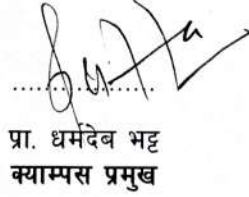 प्रा. धर्मदेब भट्ट
क्याम्पस प्रमुख